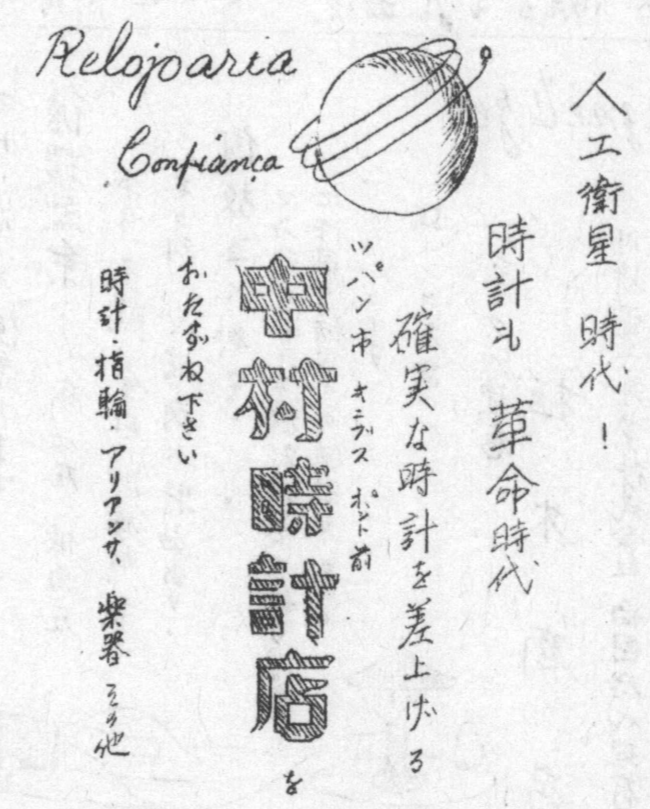 Relojoaria
Confiança
人工衛星 時代!
時計も 革命時代
確実な時計を差上げる
ツパン市 キニブス ポント前
中村時計店を
おたずね下さい
時計・指輪・アリアンサ、楽器 その他